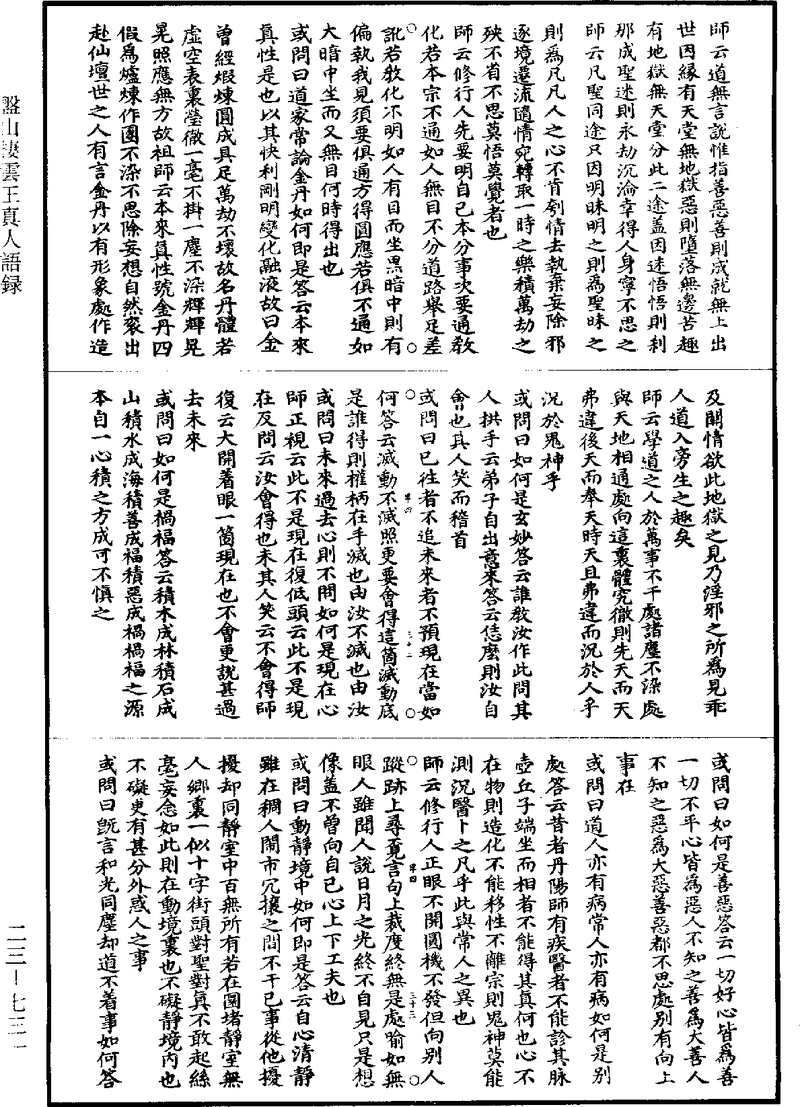 師云道無言說惟指善惡善則成就無上出
世因緣有天堂無地獄惡則墮落無邊苦趣
有地獄無天堂分此二途蓋因迷悟悟則利
那成聖迷則永劫沉淪幸得人身寧不思之
師云凡聖同途只因明昧明之則爲聖昧之
則爲凡凡人之心不肯刳情去執棄妄除邪
逐境遷流隨情宛轉取一時之樂積萬劫之
殃不省不思莫悟莫覺者也
師云修行人先要明自己本分事次要通敎
化若本宗不通如人無目不分道路舉足差
訛若敎化不明如人有目而坐黑暗中則有
偏執我見須要俱通方得圓應若俱不通如
大暗中坐而又無目何時得出也
或問曰道家常論金丹如何即是答云本來
眞性是也以其快利剛明變化融液故曰金
曾經煆煉圓成具足萬劫不壞故名丹體若
虛空表裏瑩徹一毫不掛一塵不染輝輝晃
晃照應無方故祖師云本來眞性號金丹四
假爲爐煉作團不染不思除妄想自然袞出
赴仙壇世之人有言金丹以有形象處作造
及關情欲此地獄之見乃淫邪之所爲見乖
人道入旁生之趣矣
師云學道之人於萬事不干處諸塵不染處
與天地相通處向這裏體究徹則先天而天
弗違後天而奉天時天且弗違而況於人乎
況於鬼神乎
或問曰如何是玄妙答云誰敎汝作此問其
人拱手云弟子自出意來答云恁麽則汝自
會也其人笑而稽首
或問曰已往者不追未來者不預現在當如
何答云滅動不滅照更要會得這箇滅動底
是誰得則權柄在手滅也由汝不滅也由汝
或問曰未來過去心則不問如何是現在心
師正視云此不是現在復低頭云此不是現
在反問云汝會得也未其人笑云不會得師
復云大開着眼一箇現在也不會更說甚過
去未來
或問曰如何是禍福答云積木成林積石成
山積水成海積善成福積惡成禍禍福之源
本自一心積之方成可不慎之
或問曰如何是善惡答云一切好心皆爲善
一切不平心皆爲惡人不知之善爲大善人
不知之惡爲大惡善惡都不思處別有向上
事在
或問曰道人亦有病常人亦有病如何是別
處答云昔者丹陽師有疾醫者不能診其脉
壺丘子端坐而相者不能得其眞何也心不
在物則造化不能移性不離宗則鬼神莫能
測況醫卜之凡乎此與常人之異也
師云修行人正眼不開圓機不發但向別人
蹤跡上尋覓言句上裁度終無是處喻如無
眼人雖聞人說日月之光終不自見只是想
像蓋不曾向自己心上下工夫也
或問曰動靜境中如何即是答云自心清靜
雖在稠人鬧市冗擾之間不干己事從他擾
擾却同靜室中百無所有若在圜堵靜室無
人鄉裏一似十字街頭對聖對眞不敢起絲
毫妄念如此則在動境裏也不礙靜境內也
不礙更有甚分外惑人之事
或問曰旣言和光同塵却道不着事如何答
盤山棲雲王眞人語録
二三—七三一